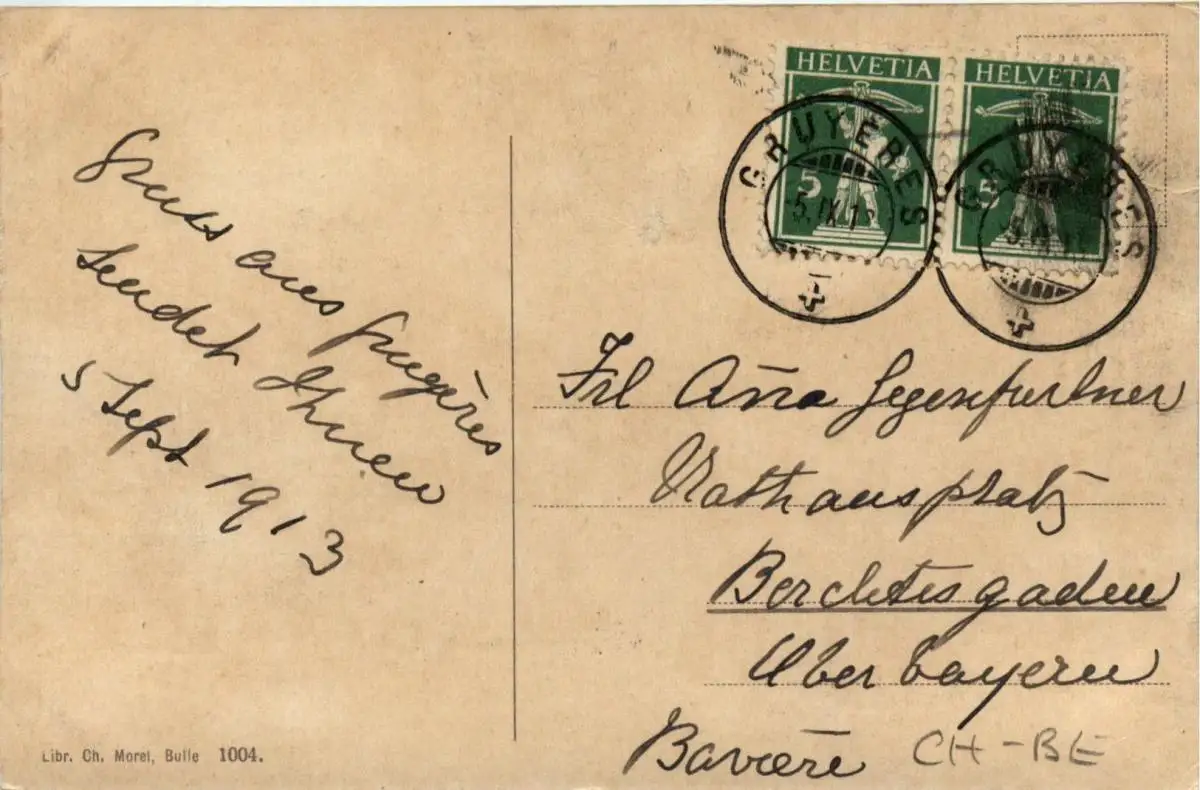 Gruss aus Gruyères
sendet Ihnen
5 Sept 1913
Libr. Ch. Morel, Bulle 1004.
HELVETIA
5
HELVETIA
5
GRUYÈRES
-5.IX.13
GRUYÈRES
Frl Anna Gegenfurtner
Rathausplatz
Berchtesgaden
Oberbayern
Bavière
CH-BE